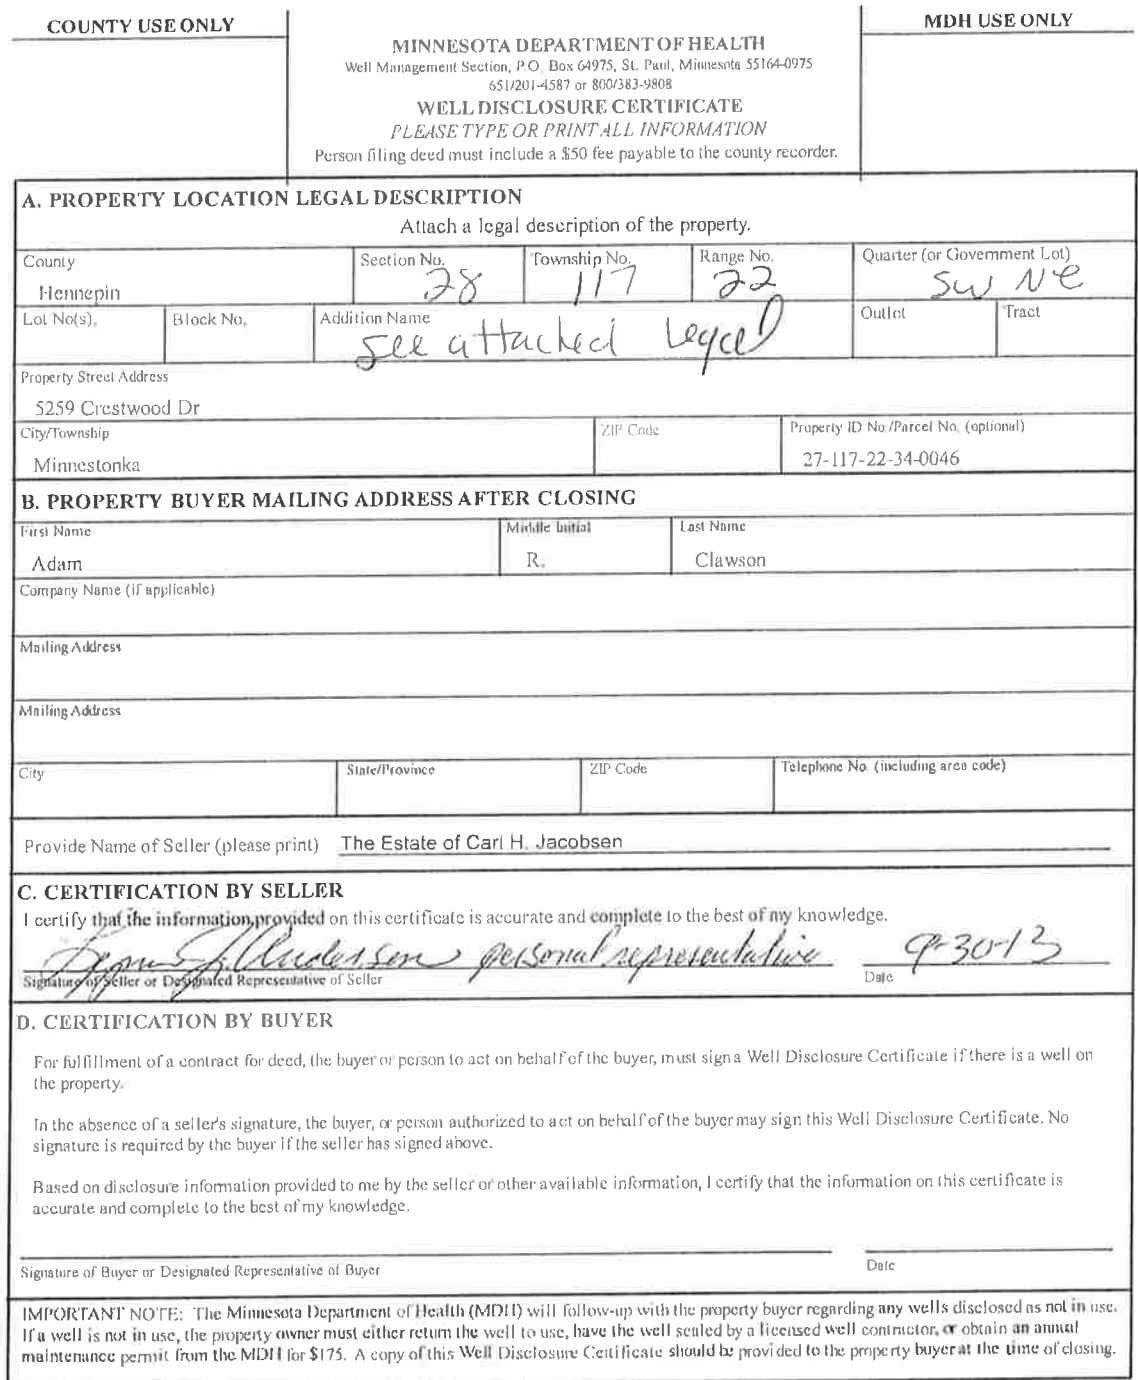 COUNTY USE ONLY
MDH USE ONLY
MINNESOTA DEPARTMENT OF HEALTH
Well Management Section, P.O. Box 64975, St. Paul, Minnesota 55164-0975
651/201-4587 or 800/383-9808
WELL DISCLOSURE CERTIFICATE
PLEASE TYPE OR PRINT ALL INFORMATION
Person filing deed must include a $50 fee payable to the county recorder.
A. PROPERTY LOCATION LEGAL DESCRIPTION
Attach a legal description of the property.
County Section No. Township No. Range No. Quarter (or Government Lot)
Hennepin 28 117 22 SW NE
Lot No(s). Block No. Addition Name Outlot Tract
see attached Legal
Property Street Address
5259 Crestwood Dr
City/Township ZIP Code Property ID No./Parcel No. (optional)
Minnestonka 27-117-22-34-0046
B. PROPERTY BUYER MAILING ADDRESS AFTER CLOSING
First Name Middle Initial Last Name
Adam R. Clawson
Company Name (if applicable)
Mailing Address
Mailing Address
City State/Province ZIP Code Telephone No. (including area code)
Provide Name of Seller (please print) The Estate of Carl H. Jacobsen
C. CERTIFICATION BY SELLER
I certify that the information provided on this certificate is accurate and complete to the best of my knowledge.
J. Andersen personal representative 9-30-13
Signature of Seller or Designated Representative of Seller Date
D. CERTIFICATION BY BUYER
For fulfillment of a contract for deed, the buyer or person to act on behalf of the buyer, must sign a Well Disclosure Certificate if there is a well on
the property.
In the absence of a seller's signature, the buyer, or person authorized to act on behalf of the buyer may sign this Well Disclosure Certificate. No
signature is required by the buyer if the seller has signed above.
Based on disclosure information provided to me by the seller or other available information, I certify that the information on this certificate is
accurate and complete to the best of my knowledge.
Signature of Buyer or Designated Representative of Buyer Date
IMPORTANT NOTE: The Minnesota Department of Health (MDH) will follow-up with the property buyer regarding any wells disclosed as not in use.
If a well is not in use, the property owner must either return the well to use, have the well sealed by a licensed well contractor, or obtain an annual
maintenance permit from the MDH for $175. A copy of this Well Disclosure Certificate should be provided to the property buyer at the time of closing.